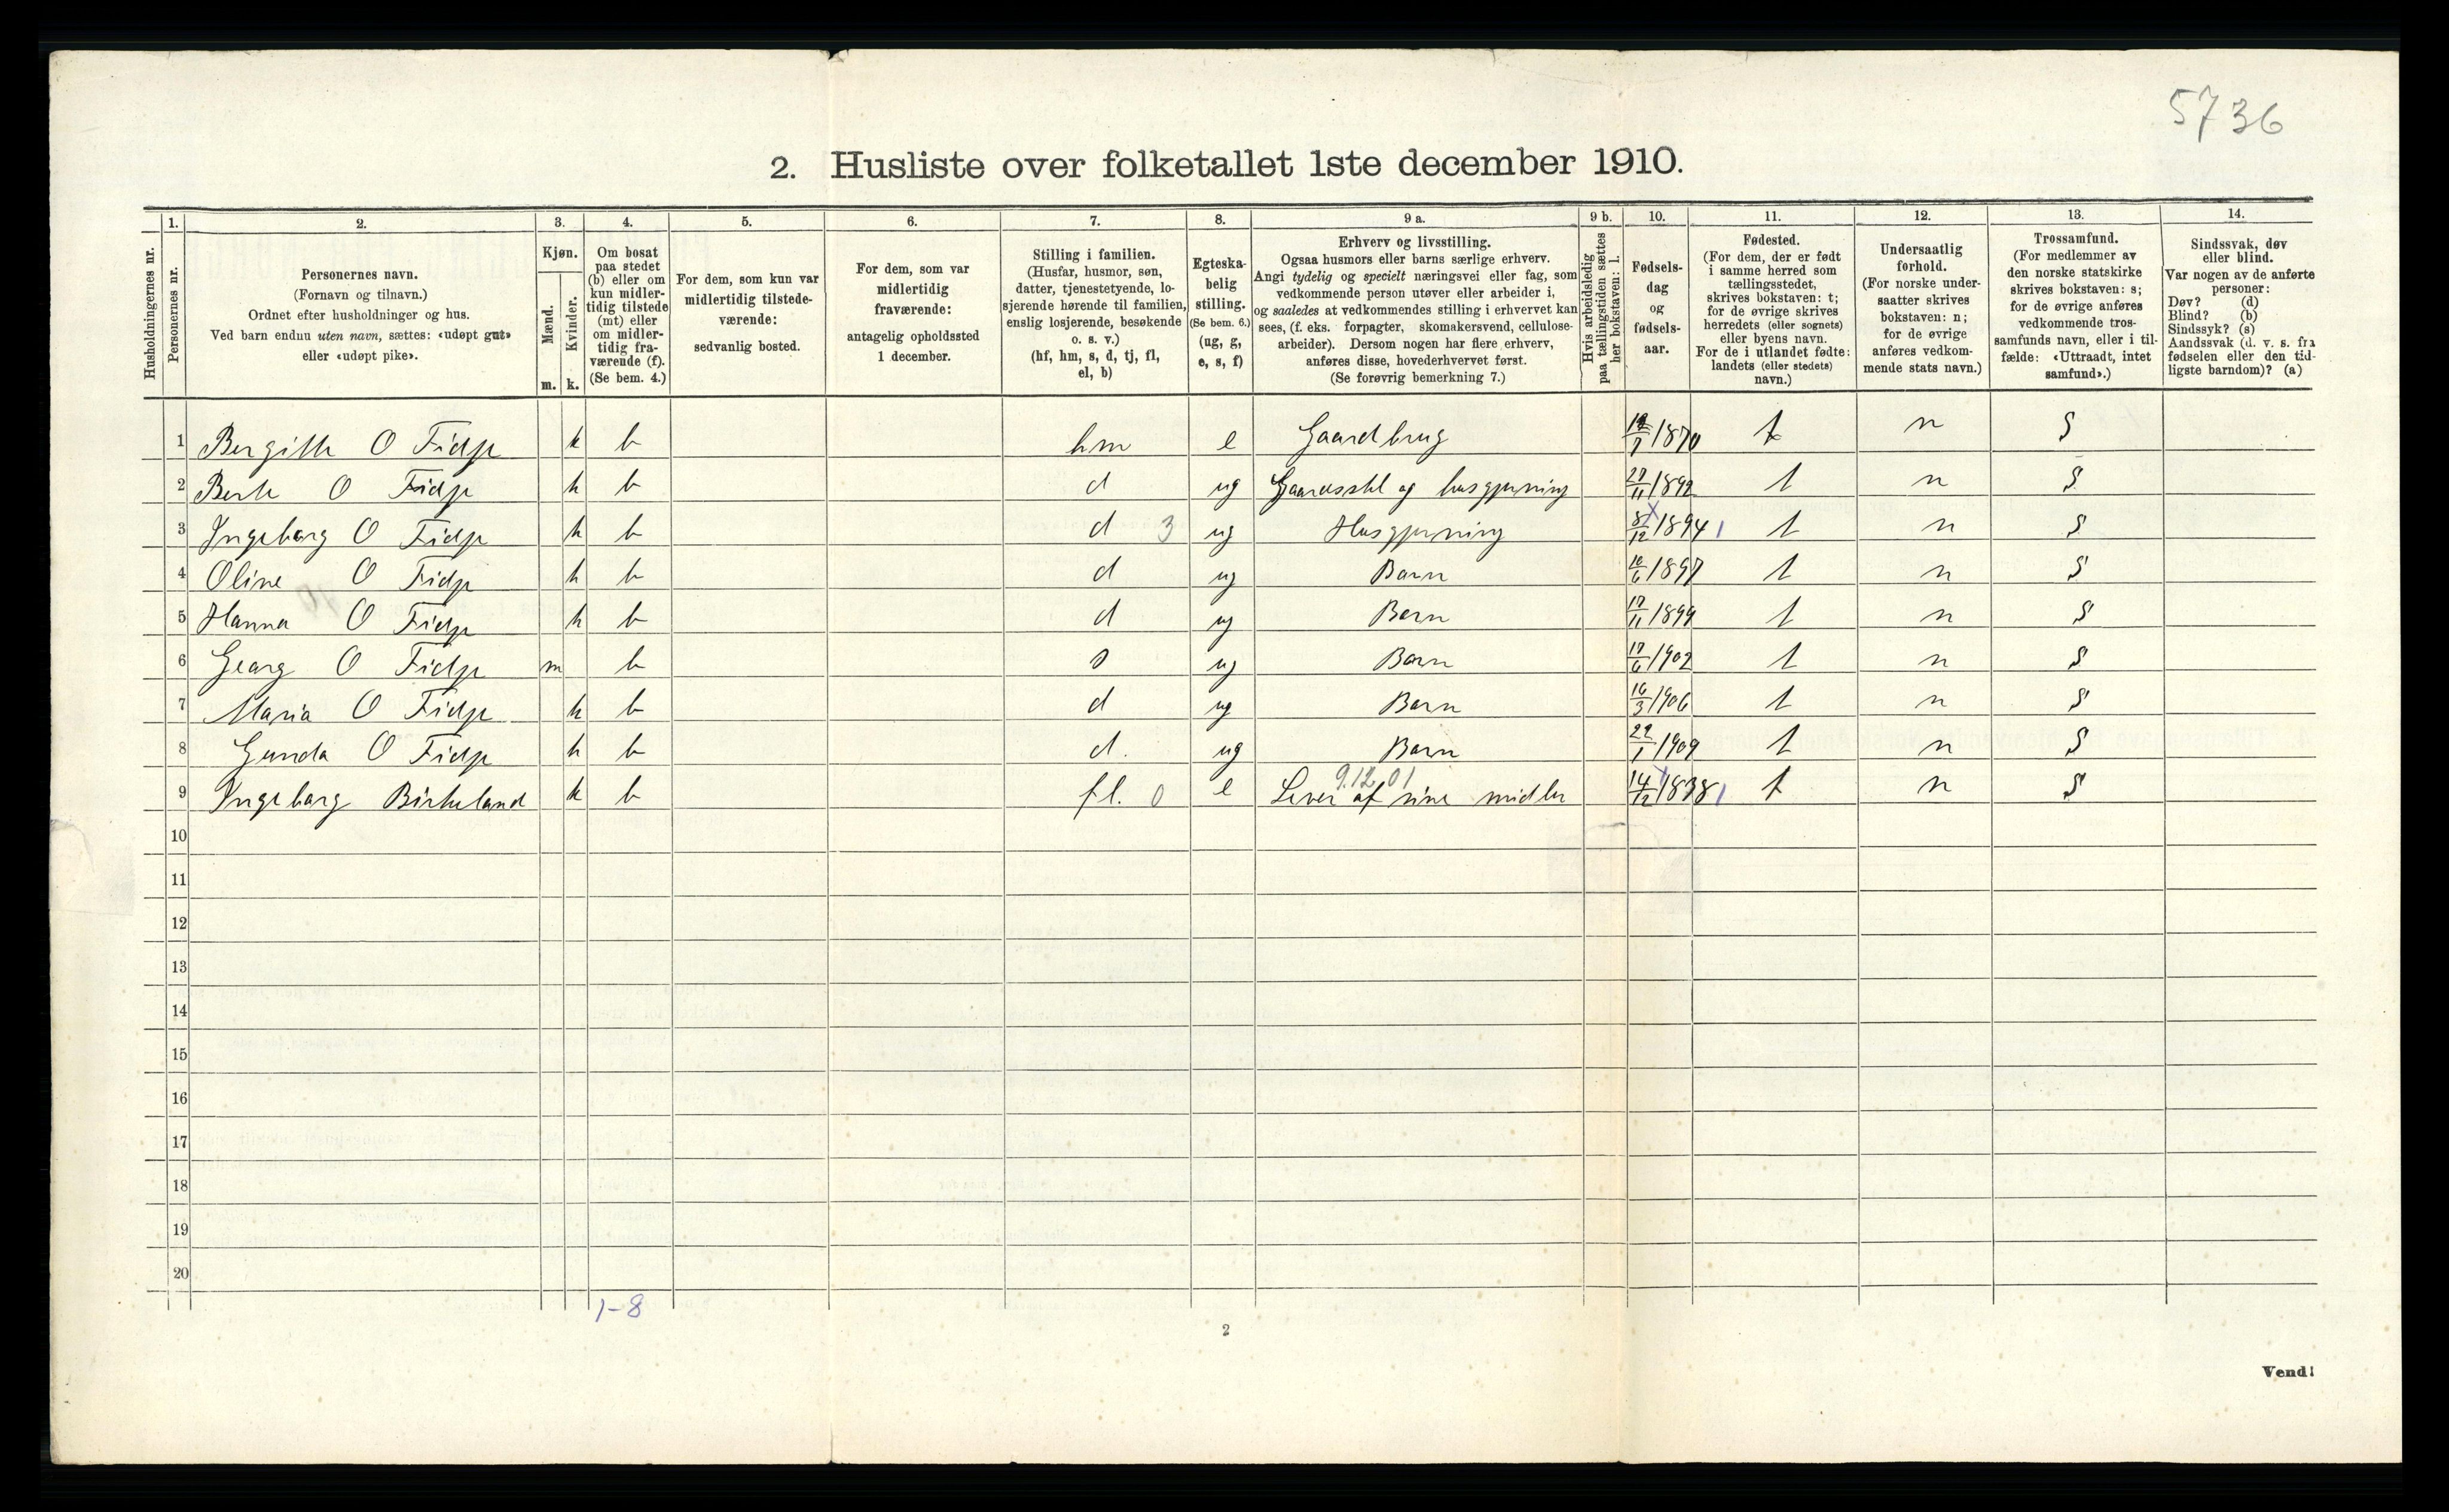 5736
2. Husliste over folketallet 1ste december 1910.
Husholdningernes nr.
1. Personernes nr.
2. Personernes navn.
(Fornavn og tilnavn.)
Ordnet efter husholdninger og hus.
Ved barn endnu uten navn, sættes: «udøpt gut»
eller «udøpt pike».
3. Kjøn.
Mænd. m.
Kvinder. k.
4. Om bosat
paa stedet
(b) eller om
kun midler-
tidig tilstede
(mt) eller
om midler-
tidig fra-
værende (f).
(Se bem. 4.)
5. For dem, som kun var
midlertidig tilstede-
værende:
sedvanlig bosted.
6. For dem, som var
midlertidig
fraværende:
antagelig opholdssted
1 december.
7. Stilling i familien.
(Husfar, husmor, søn,
datter, tjenestetyende, lo-
sjerende hørende til familien,
enslig losjerende, besøkende
o. s. v.)
(hf, hm, s, d, tj, fl,
el, b)
8. Egteska-
belig
stilling.
(Se bem. 6.)
(ug, g,
e, s, f)
9 a. Erhverv og livsstilling.
Ogsaa husmors eller barns særlige erhverv.
Angi tydelig og specielt næringsvei eller fag, som
vedkommende person utøver eller arbeider i,
og saaledes at vedkommendes stilling i erhvervet kan
sees, (f. eks. forpagter, skomakersvend, cellulose-
arbeider). Dersom nogen har flere erhverv,
anføres disse, hovederhvervet først.
(Se forøvrig bemerkning 7.)
9 b. Hvis arbeidsledig
paa tællingstiden sættes
her bokstaven: l.
10. Fødsels-
dag
og
fødsels-
aar.
11. Fødested.
(For dem, der er født
i samme herred som
tællingsstedet,
skrives bokstaven: t;
for de øvrige skrives
herredets (eller sognets)
eller byens navn.
For de i utlandet fødte:
landets (eller stedets)
navn.)
12. Undersaatlig
forhold.
(For norske under-
saatter skrives
bokstaven: n;
for de øvrige
anføres vedkom-
mende stats navn.)
13. Trossamfund.
(For medlemmer av
den norske statskirke
skrives bokstaven: s;
for de øvrige anføres
vedkommende tros-
samfunds navn, eller i til-
fælde: «Uttraadt, intet
samfund».)
14. Sindssvak, døv
eller blind.
Var nogen av de anførte
personer:
Døv? (d)
Blind? (b)
Sindssyk? (s)
Aandssvak (d. v. s. fra
fødselen eller den tid-
ligste barndom)? (a)
1 Bergitte O Fidje k b hm e Gaardbrug 1870 t n S
2 Berte O Fidje k b d ug Gaardsstel og husgjerning 27/11 1892 t n S
3 Ingeborg O Fidje k b d 3 ug Husgjerning 8/12 1894 t n S
4 Oline O Fidje k b d ug Barn 10/6 1897 t n S
5 Hanna O Fidje k b d ug Barn 17/11 1899 t n S
6 Georg O Fidje m b s ug Barn 17/6 1902 t n S
7 Maria O Fidje k b d ug Barn 16/3 1906 t n S
8 Gunda O Fidje k b d. ug Barn 22/1 1909 t n S
9.12.01
9 Ingeborg Birkeland k b fl. 0 e Lever af sine midler 14/12 1838 t n S
10
11
12
13
14
15
16
17
18
19
20
1-8
2
Vend!